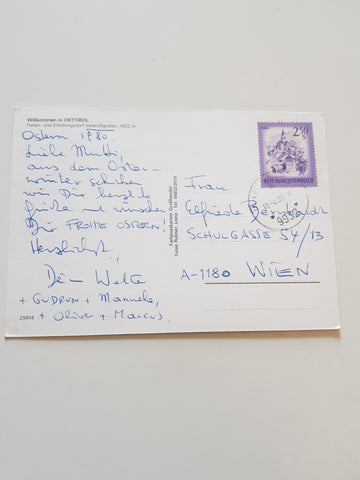 Willkommen in OSTTIROL
Ferien- und Erholungsdorf Innervillgraten, 1402 m
Ostern 1980
Liebe Mutti,
aus dem Oster-
winter schicken
wir Dir herzliche
Grüße und wünschen
Dir FROHE OSTERN!
Herzlichst,
Dein
+ GUDRUN + Manuela,
+ Oliver + Marcus
29414
Farbpostkarten Großhandel
Luise Rußner, Lienz · Tel. 04852-2019
2.50
REPUBLIK ÖSTERREICH
Frau
Elfriede
SCHULGASSE 54/13
A-1180 WIEN